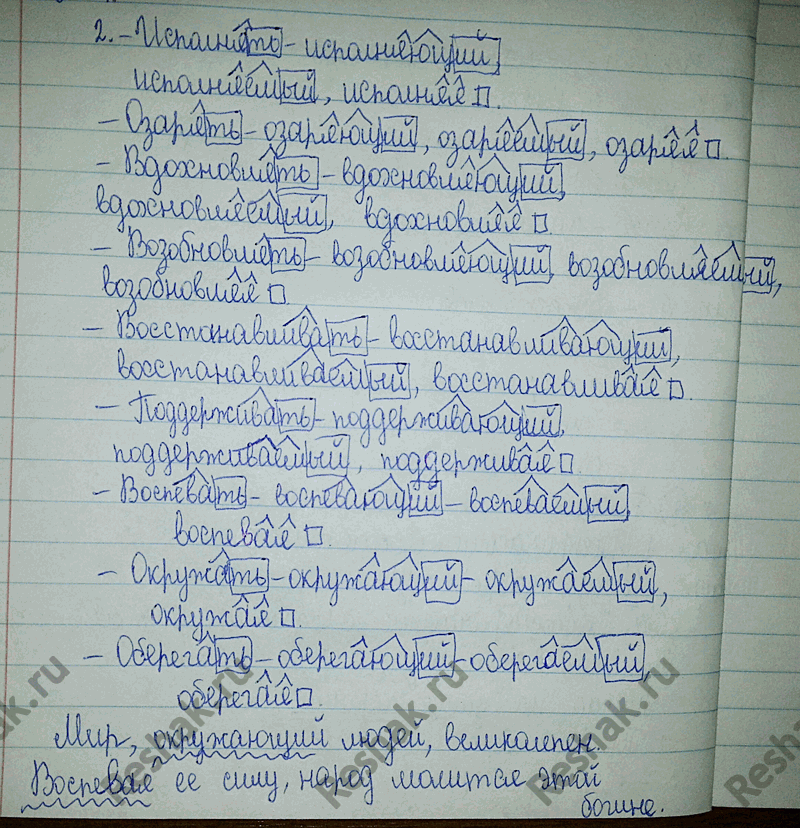 2. - Исполнять - исполняющий,
исполняемый, исполняя □.
- Озарять - озаряющий, озаряемый, озаряя □.
- Вдохновлять - вдохновляющий,
вдохновляемый, вдохновляя □.
- Возобновлять - возобновляющий, возобновляемый,
возобновляя □.
- Восстанавливать - восстанавливающий,
восстанавливаемый, восстанавливая □.
- Поддерживать - поддерживающий,
поддерживаемый, поддерживая □.
- Воспевать - воспевающий - воспеваемый,
воспевая □.
- Окружать - окружающий - окружаемый,
окружая □.
- Оберегать - оберегающий - оберегаемый,
оберегая □.
Мир, окружающий людей, великолепен.
Воспевая ее силу, народ молится этой
богине.
Reshak.ru
Reshak.ru
Reshak.ru
Reshak.ru